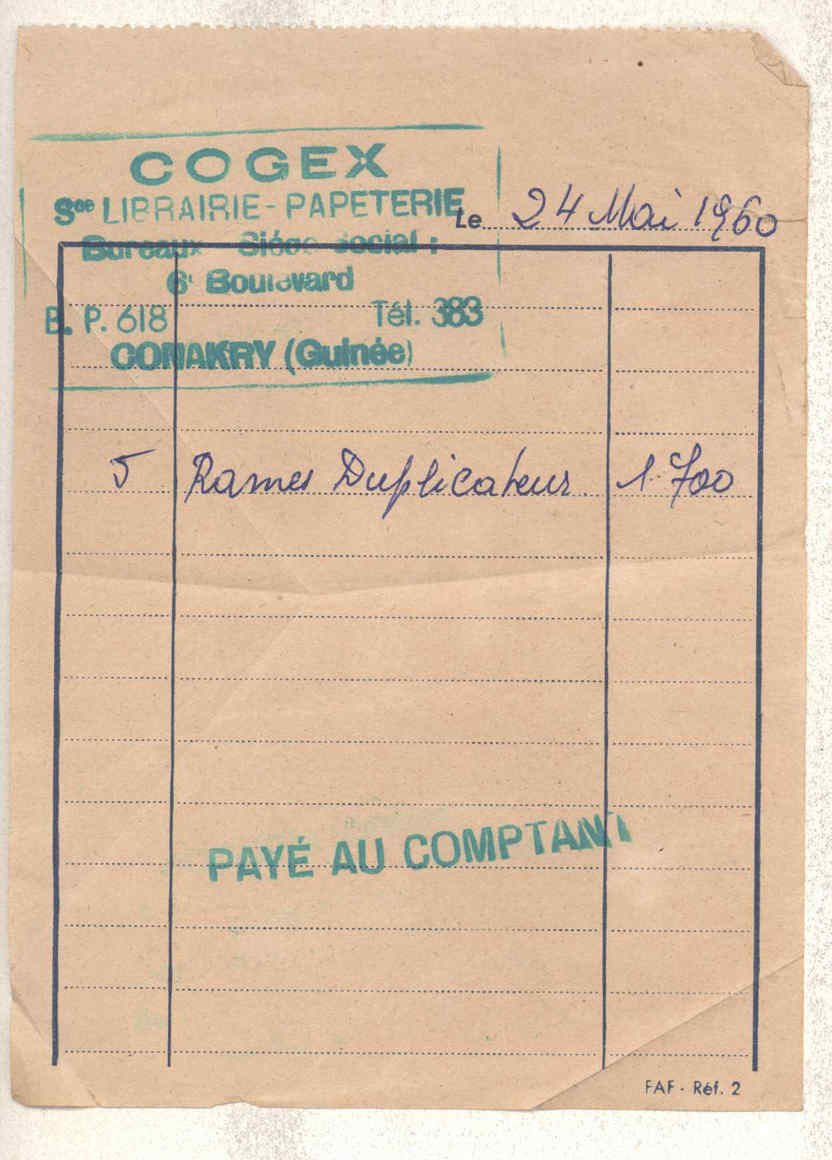 COGEX
Sce LIBRAIRIE - PAPETERIE
Le 24 Mai 1960
Bureaux Siège Social :
6e Boulevard
B. P. 618 Tél. 383
CONAKRY (Guinée)
5 Rames Duplicateur 1.700
PAYÉ AU COMPTANT
FAF - Réf. 2